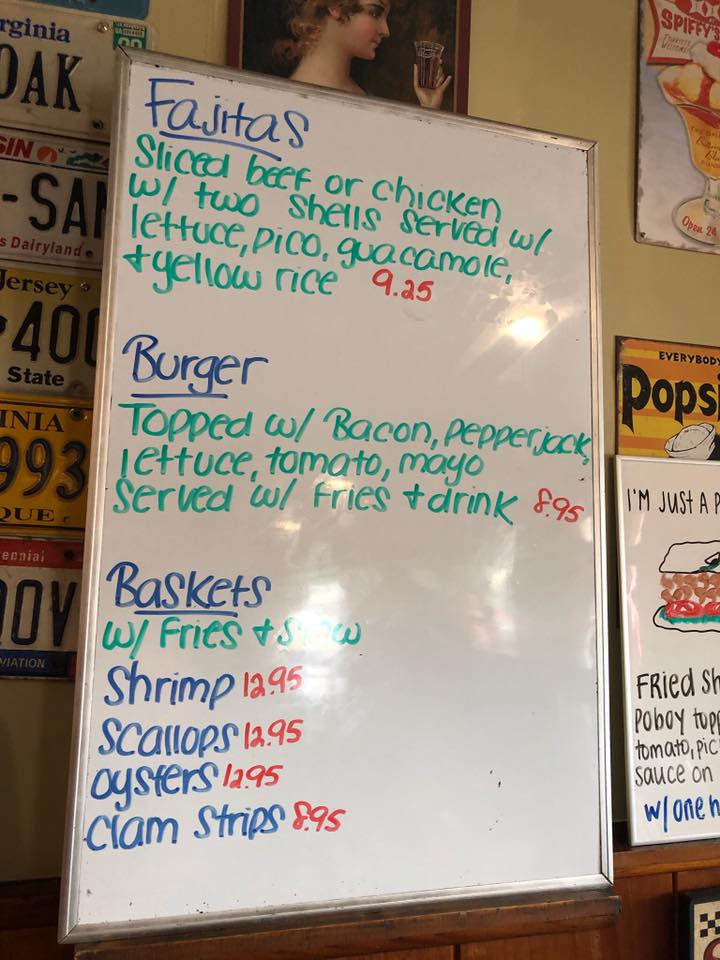 Fajitas
Sliced beef or chicken
w/ two shells served w/
lettuce, pico, guacamole,
+ yellow rice 9.25
Burger
Topped w/ Bacon, pepperjack,
lettuce, tomato, mayo
Served w/ Fries + drink 8.95
Baskets
w/ Fries +
Shrimp 12.95
Scallops 12.95
oysters 12.95
clam strips 8.95
rginia
OAK
SIN
-SAN
s Dairyland
Jersey
400
State
INIA
993
QUE
ennial
OOV
VIATION
SPIFFY'S
Open 24
EVERYBODY
Popsi
I'M JUST A P
FRied Sh
Poboy topp
tomato, pic
sauce on
w/ one h